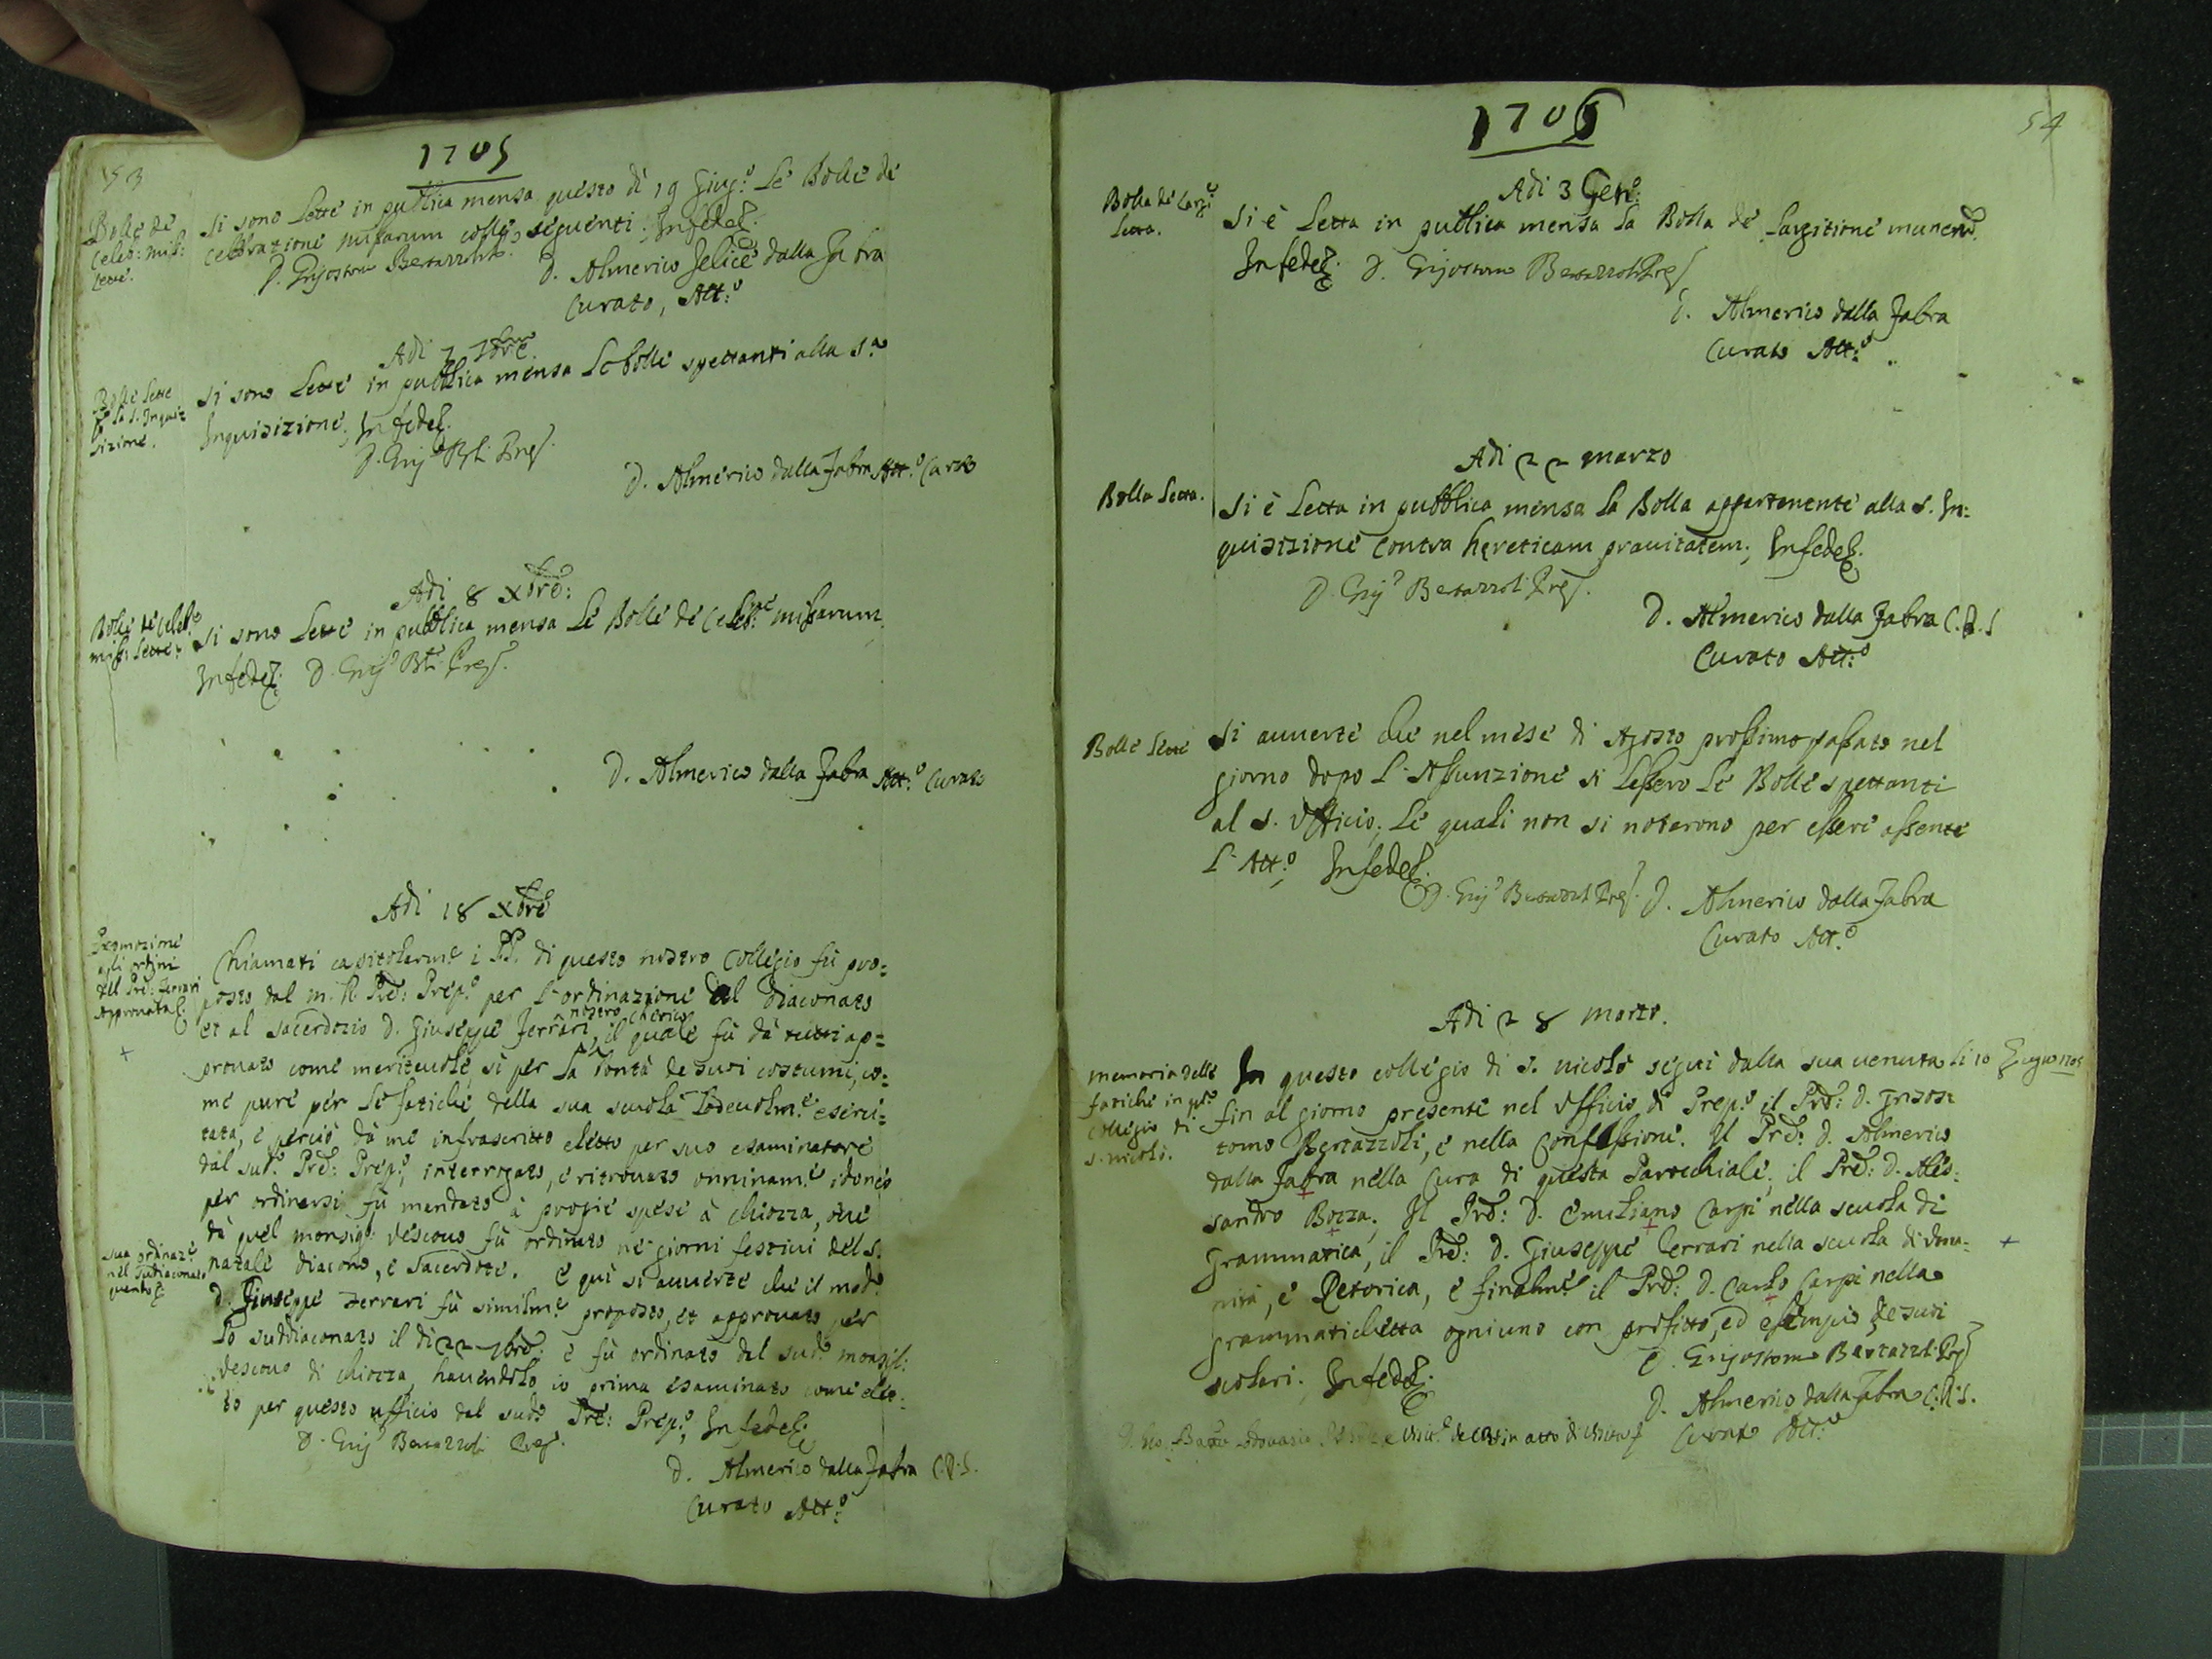 53
1705
Bolle de
Celeb: miss:
lette.
Si sono Lette in publica mensa questo dì 19 Giug.º Le Bolle de
Celebrazione missarum colle seguenti. In fede
D. Grisostomo Bertazzoli
D. Almerico Felice dalla Fabra
Curato, Att:º
Adi 7bre
Bolle Lette
la S. Inqui=
sizione.
Si sono Lette in pubblica mensa Le bolle spettanti alla S.ª
Inquisizione, In fede
D. Gris.º Prep.
D. Almerico dalla Fabra Att.º Curato
Adi 8 Xbre:
Bolle de Celeb.e
miss: Lette
Si sono Lette in pubblica mensa Le Bolle de Celeb:ne missarum.
In fede D. Gris.º Prep.
D. Almerico dalla Fabra Att.º Curato
Adi 18 Xbre
Promozione
agli ordini
del Pre: Ferrari
approvata
Chiamati capitolarm.e i PP. di questo nostro Collegio fù pro=
posto dal m. R. Pre: Prep.º per L'ordinazione al diaconato
et al sacerdozio D. Giuseppe Ferrari nostro chierico, il quale fù dà tutti ap=
prouato come meriteuole, sì per La bontà de suoi costumi, co=
me pure per Le fatiche della sua scuola Lodeuolm.e eserci=
tata, e perciò dà me infrascritto eletto per suo esaminatore
dal sud.º Pre: Prep.º, interrogato, e ritrouato onninam.e idoneo
per ordinarsi fù mandato à propie spese à Chiozza, oue
dà quel monsig. Vescouo fù ordinato ne' giorni festiui del S.
natale diacono, e Sacerdote. E quì si auuerte che il med.º
sua ordinaz.e
nel Sudiaconato
D. Giuseppe Ferrari fù similm.e proposto, et approuato per
Lo suddiaconato il dì 22 7bre: e fù ordinato dal sud.º monsig:
Vescouo di Chiozza, hauendolo io prima esaminato come elet=
to per questo ufficio dal sud.º Pre: Prep.º, In fede
D. Gris.º Bertazzoli Prep.
D. Almerico dalla Fabra C.R.S.
Curato Att:º
54
1706
Adi 3 Gen:º
Bolla de Largi.e
Letta.
Si è Letta in pubblica mensa La Bolla de Largitione munerũ.
In fede D. Grisostomo Bertazzoli Prep.
D. Almerico dalla Fabra
Curato Att:º
Adi 22 marzo
Bolla Letta.
Si è Letta in pubblica mensa La Bolla appartenente alla S. In=
quisizione Contra hęreticam prauitatem, In fede
D. Gris.º Bertazzoli Prep.
D. Almerico dalla Fabra C.R.S
Curato Att:º
Bolle Lette
Si auuerte che nel mese di Agosto prossimo passato nel
giorno dopo L'Assunzione si Lessero Le Bolle spettanti
al S. Ufficio, Le quali non si notarono per essere assente
L'Att:º In fede
D. Gris.º Bertazzoli Prep. D. Almerico dalla Fabra
Curato Att.º
Adi 28 marzo.
memoria delle
fatiche in q.to
Collegio di
S. nicolò.
In questo collegio di S. nicolò seguì dalla sua uenuta li 10 Giugno 1705
fin al giorno presente nel Ufficio di Prep.º il Pre: D. Grisos=
tomo Bertazzoli, e nella Confessione. Il Pre: D. Almerico
dalla Fabra nella Cura di questa Parocchiale, il Pre: D. Ales=
sandro Bozza, Il Pre: D. Emiliano Carpi nella scuola di
Grammatica, il Pre: D. Giuseppe Ferrari nella scuola di Vma=
nità, e Retorica, e finalm.e il Pre: D. Carlo Carpi nella
grammatichetta ogniuno con profitto, ed essempio de suoi
scolari. In fede
D. Grisostomo Bertazzoli Prep
D. Almerico dalla Fabra C.R.S.
Curato Att:º
in atto di Visita